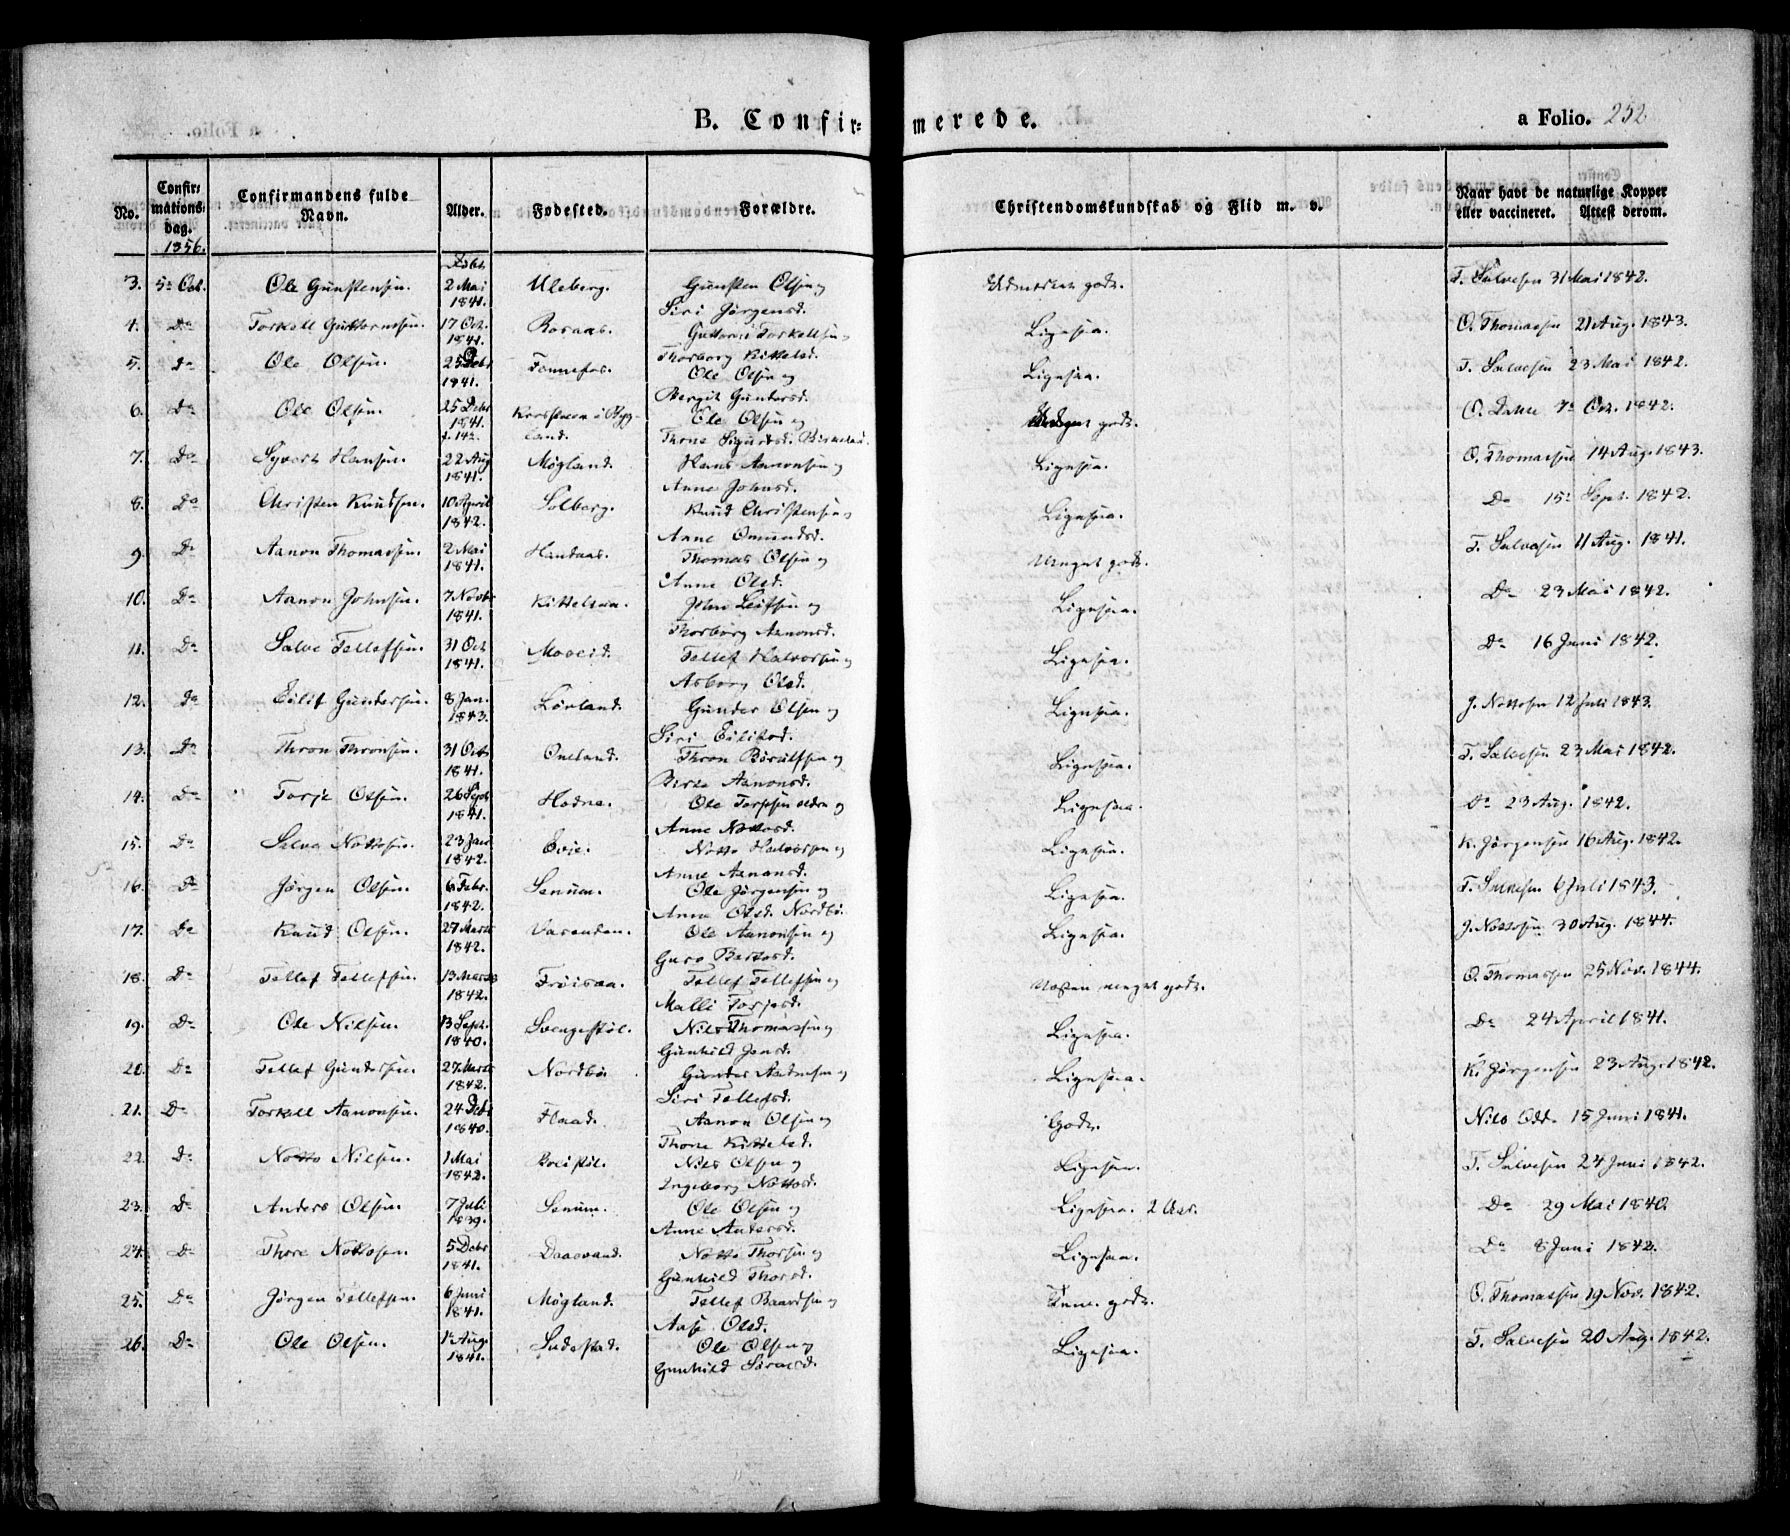 B. Confir=merede.
a Folio. 252
No.
Confir=mations dag.
1856.
Confirmandens fulde Navn.
Alder.
Fødested.
Forældre.
Christendomskundskab og Flid m. v.
Naar havt de naturlige Kopper eller vaccineret. Attest derom.
3. 5te Oct. Ole Gunstensen. 2 Mai 1841. Uleberg. Gunsten Olsen og Siri Jørgensd. Udmerket godt. T. Salvesen 31 Mai 1842.
4. Do Torkell Guttormsen. 17 Oct. 1841. Rosaas. Guttorm Torkellsen, Thorborg Kittelsd. Ligesaa. O. Thomassen 21 Aug. 1843.
5. do Ole Olsen. 25 1841. Fennefos. Ole Olsen og Bergit Gundersd. Ligesaa. T. Salvesen 23 Mai 1842.
6. Do Ole Olsen. 25 Debr 1841. f. 142. i Bygland. Ole Olsen og Thone Sigurdsd. Meget godt. O. Oct. 1842.
7. Do Syvert Hansen. 22 Aug 1841. Møgland. Hans Aanonsen og Anne Johnsd. Ligesaa. O. Thomassen 14 Aug. 1843.
8. Do Christen Knudsen. 10 April 1842. Solberg. Knud Christensen, Anne Omundsd. Ligesaa. Do 15 Sept. 1842.
9. Do Aanon Thomassen. 2 Mai 1841. Hundaas. Thomas Olsen og Anne Olsd. Meget godt. T. Salvesen 11 Aug. 1841.
10. Do Aanon Johnsen. 7 Novbr 1841. Kittelsaa. John Leifsen og Thorborg Aanonsd. Ligesaa. Do 23 Mai 1842.
11. Do Salve Tellefsen. 31 Oct 1841. Moseid. Tellef Halvorsen og Asborg Olsd. Ligesaa. Do 16 Juni 1842.
12. do Eilif Gundersen. 8 Jan. 1843. Lørland. Gunder Olsen og Siri Eilifsd. Ligesaa. J. Nottosen 12 Juli 1843.
13. Do Thron Thronsen. 31 Oct 1841. Oneland. Thron Børulfsen og Birte Aanonsd. Ligesaa. T. Salvesen 23 Mai 1842.
14. Do Torje Olsen. 26 Sept 1841. Hodne. Ole Torjesen eldre og Anne Nottosd. Ligesaa. Do 23 Aug. 1842.
15. Do Salve Nottosen. 23 Jan 1842. Evje. Notto Halvorsen og Anne Aanonsd. Ligesaa. K. Jørgensen 16 Aug. 1842.
16. Do Jørgen Olsen. 6 Febr. 1842. Senum. Ole Jørgensen og Anne Olsd. Nordbø. Ligesaa. T. Salvesen 6 Juli 1843.
17. Do Knud Olsen. 27 Marts 1842. Vasenden. Ole Aanonsen og Guro Bertosd. Ligesaa. J. Nottosen 30 Aug. 1844.
18. Do Tellef Tellefsen. 13 Marts 1842. Frøisaa. Tellef Tellefsen og Malli Torjesd. Næsten meget godt. O. Thomassen 25 Nov. 1844.
19. Do Ole Nilsen. 13 Sept. 1840. Svengestøl. Nils Thomassen og Gunhild Jensd. Ligesaa. Do 24 April 1841.
20. Do Tellef Gundersen. 27 Marts 1842. Nordbø. Gunder og Siri Tellefsd. Ligesaa. K. Jørgensen 23 Aug. 1842.
21. Do Torkell Aanonsen. 24 Debr 1840. Flaad. Aanon Olsen og Thone Kittelsd. Godt. Nils Odd. 15 Juni 1841.
22. Do Notto Nilsen. 1 Mai 1842. Nils Olsen og Ingeborg Nottosd. Ligesaa. T. Salvesen 24 Juni 1842.
23. Do Anders Olsen. 7 Juli 1839. Senum. Ole Olsen og Anne Andersd. Ligesaa. 2 Aar. Do 29 Mai 1840.
24. Do Thore Nottosen. 5 Debr 1841. Daasvand. Notto Thorsen og Gunhild Thorsd. Ligesaa. Do 8 Juni 1842.
25. Do Jørgen Tellefsen. 6 Juni 1841. Møgland. Tellef Baardsen og Aase Olsd. Temm. godt. O. Thomassen 19 Nov. 1842.
26. Do Ole Olsen. 1te Aug. 1841. Ole Olsen og Gunhild. Ligesaa. T. Salvesen 20 Aug. 1842.